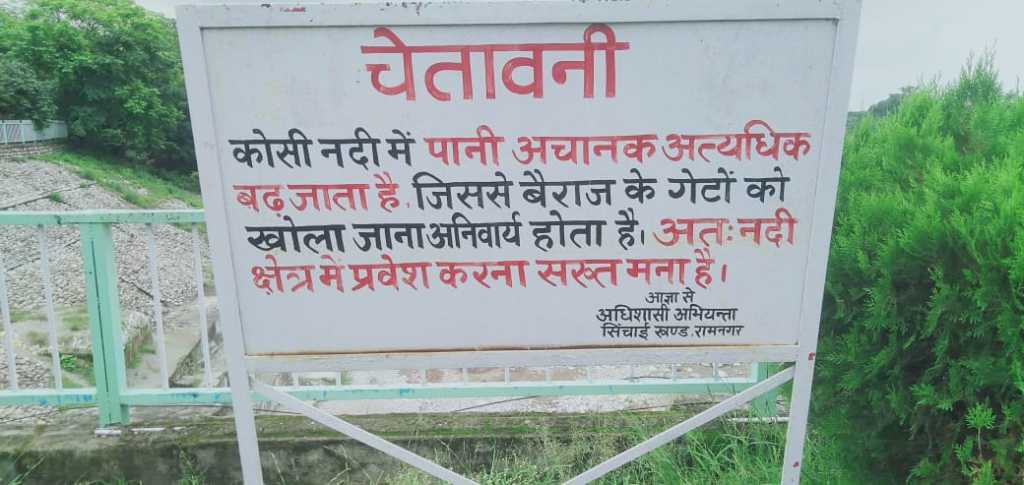 चेतावनी
कोसी नदी में पानी अचानक अत्यधिक
बढ़ जाता है, जिससे बैराज के गेटों को
खोला जाना अनिवार्य होता है। अतः नदी
क्षेत्र में प्रवेश करना सख्त मना है।
आज्ञा से
अधिशासी अभियन्ता
सिंचाई खण्ड, रामनगर